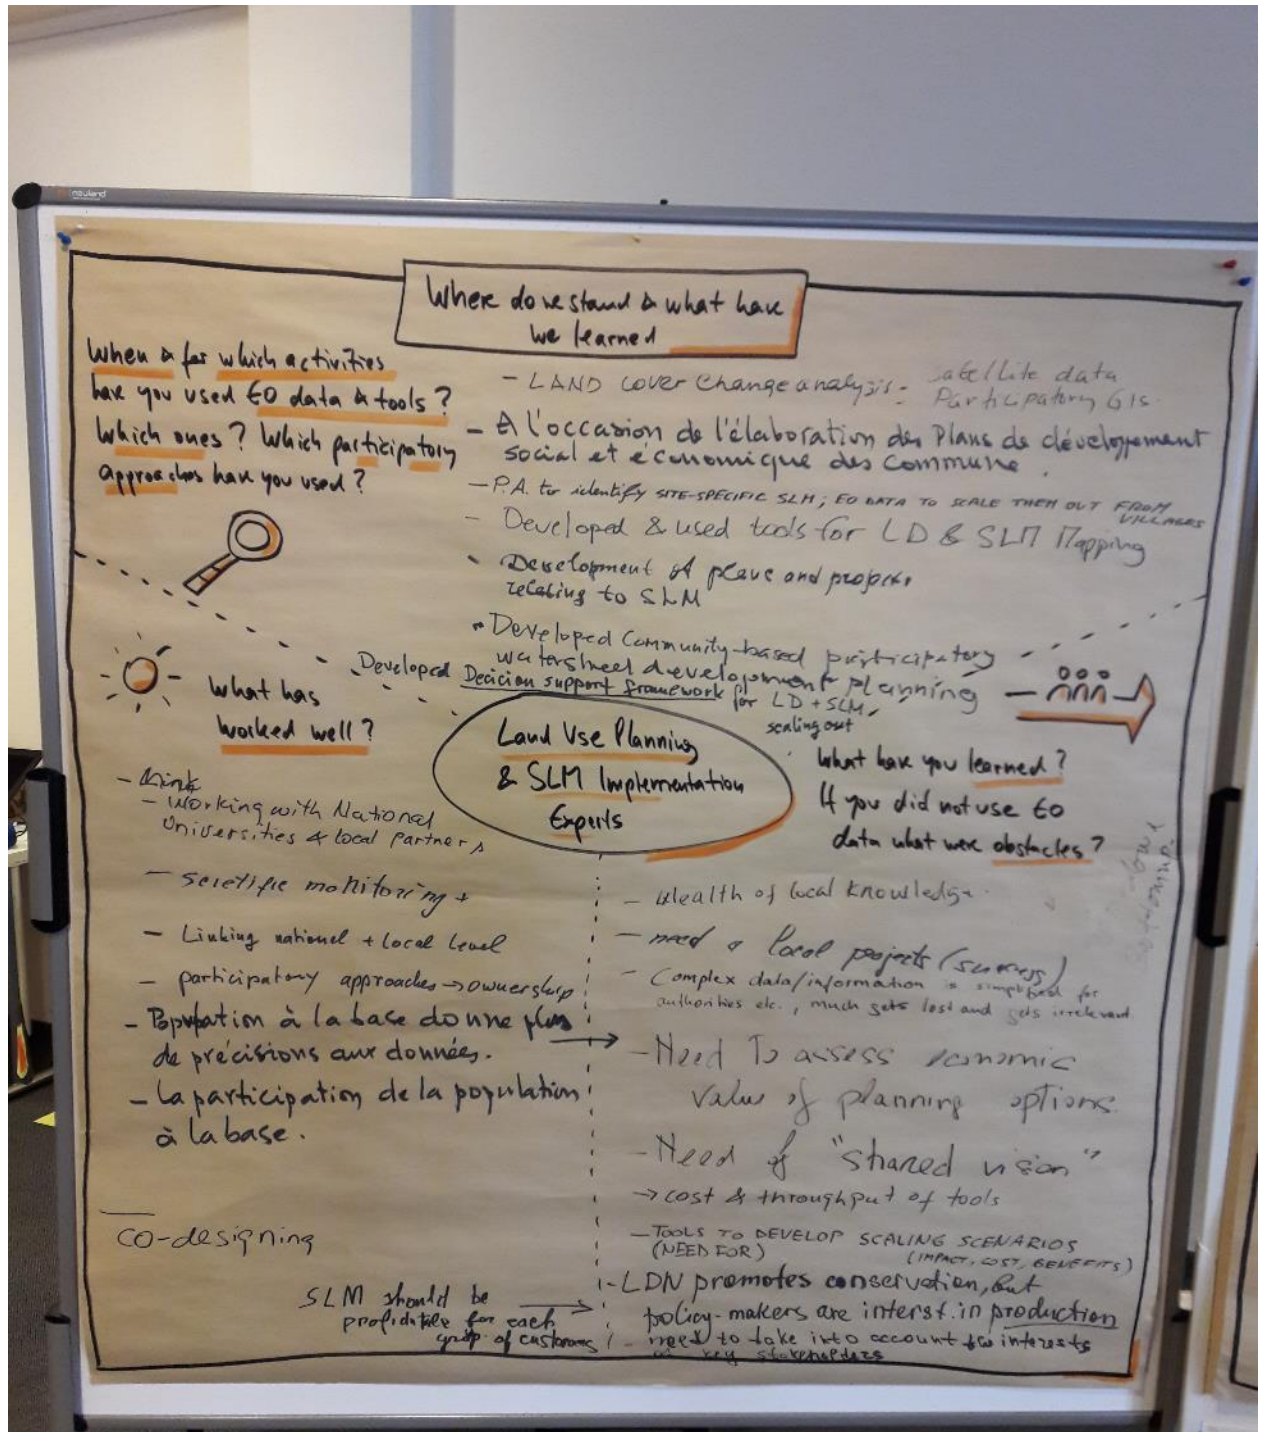 nobo
Where do we stand & what have
we learned
When & for which activities
have you used EO data & tools?
Which ones? Which participatory
approaches have you used?
- LAND cover change analysis - Satellite data
Participatory GIS.
- A l'occasion de l'élaboration des Plans de développement
social et économique des commune.
- P.A. to identify SITE-SPECIFIC SLM; EO DATA TO SCALE THEM OUT FROM
VILLAGES
- Developed & used tools for LD & SLM Mapping
- Development of plans and projects
relating to SLM
- Developed Community-based participatory
watershed development planning
Developed Decision support framework for LD + SLM,
scaling out
What has
worked well?
Land Use Planning
& SLM Implementation
Experts
What have you learned?
If you did not use EO
data what were obstacles?
- Working with National
Universities & local partners
- Scietific monitoring +
- Linking national + local level
- participatory approaches → ownership
- Population à la base donne plus →
de précisions aux données.
- La participation de la population
à la base.
co-designing
SLM should be →
profitable for each
group of customers
- Wealth of local knowledge.
- need local projects (success)
- Complex data/information is simplified for
authorities etc., much gets lost and gets irrelevant.
- Need To assess economic
value of planning options.
- Need of "shared vision"
→ cost & throughput of tools
- TOOLS TO DEVELOP SCALING SCENARIOS
(NEED FOR) (IMPACT, COST, BENEFITS)
- LDN promotes conservation, but
policy-makers are interst. in production
- need to take into account the interests
of key stakeholders